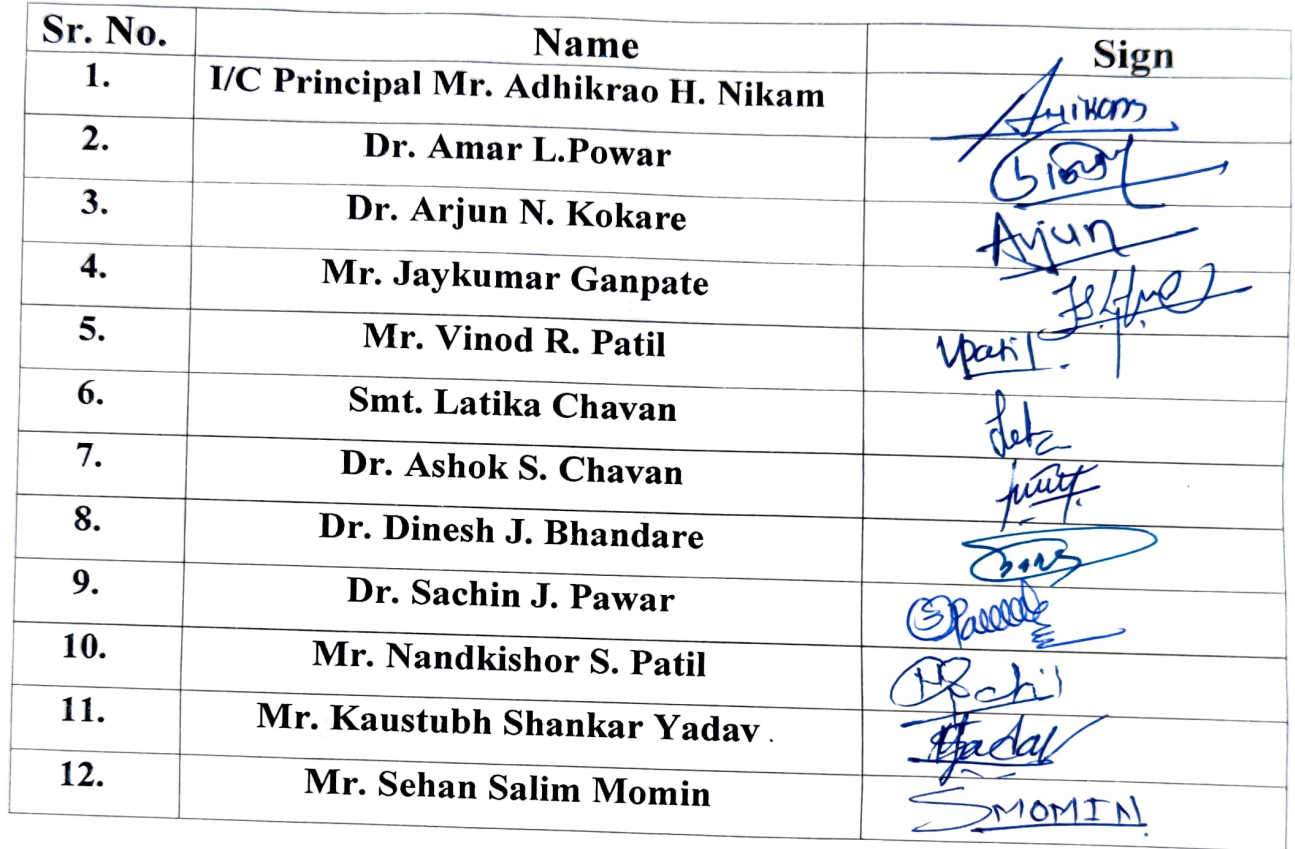 Sr. No. Name Sign
1. I/C Principal Mr. Adhikrao H. Nikam
2. Dr. Amar L.Powar
3. Dr. Arjun N. Kokare Arjun
4. Mr. Jaykumar Ganpate
5. Mr. Vinod R. Patil VPatil
6. Smt. Latika Chavan
7. Dr. Ashok S. Chavan
8. Dr. Dinesh J. Bhandare
9. Dr. Sachin J. Pawar
10. Mr. Nandkishor S. Patil
11. Mr. Kaustubh Shankar Yadav
12. Mr. Sehan Salim Momin SMOMIN